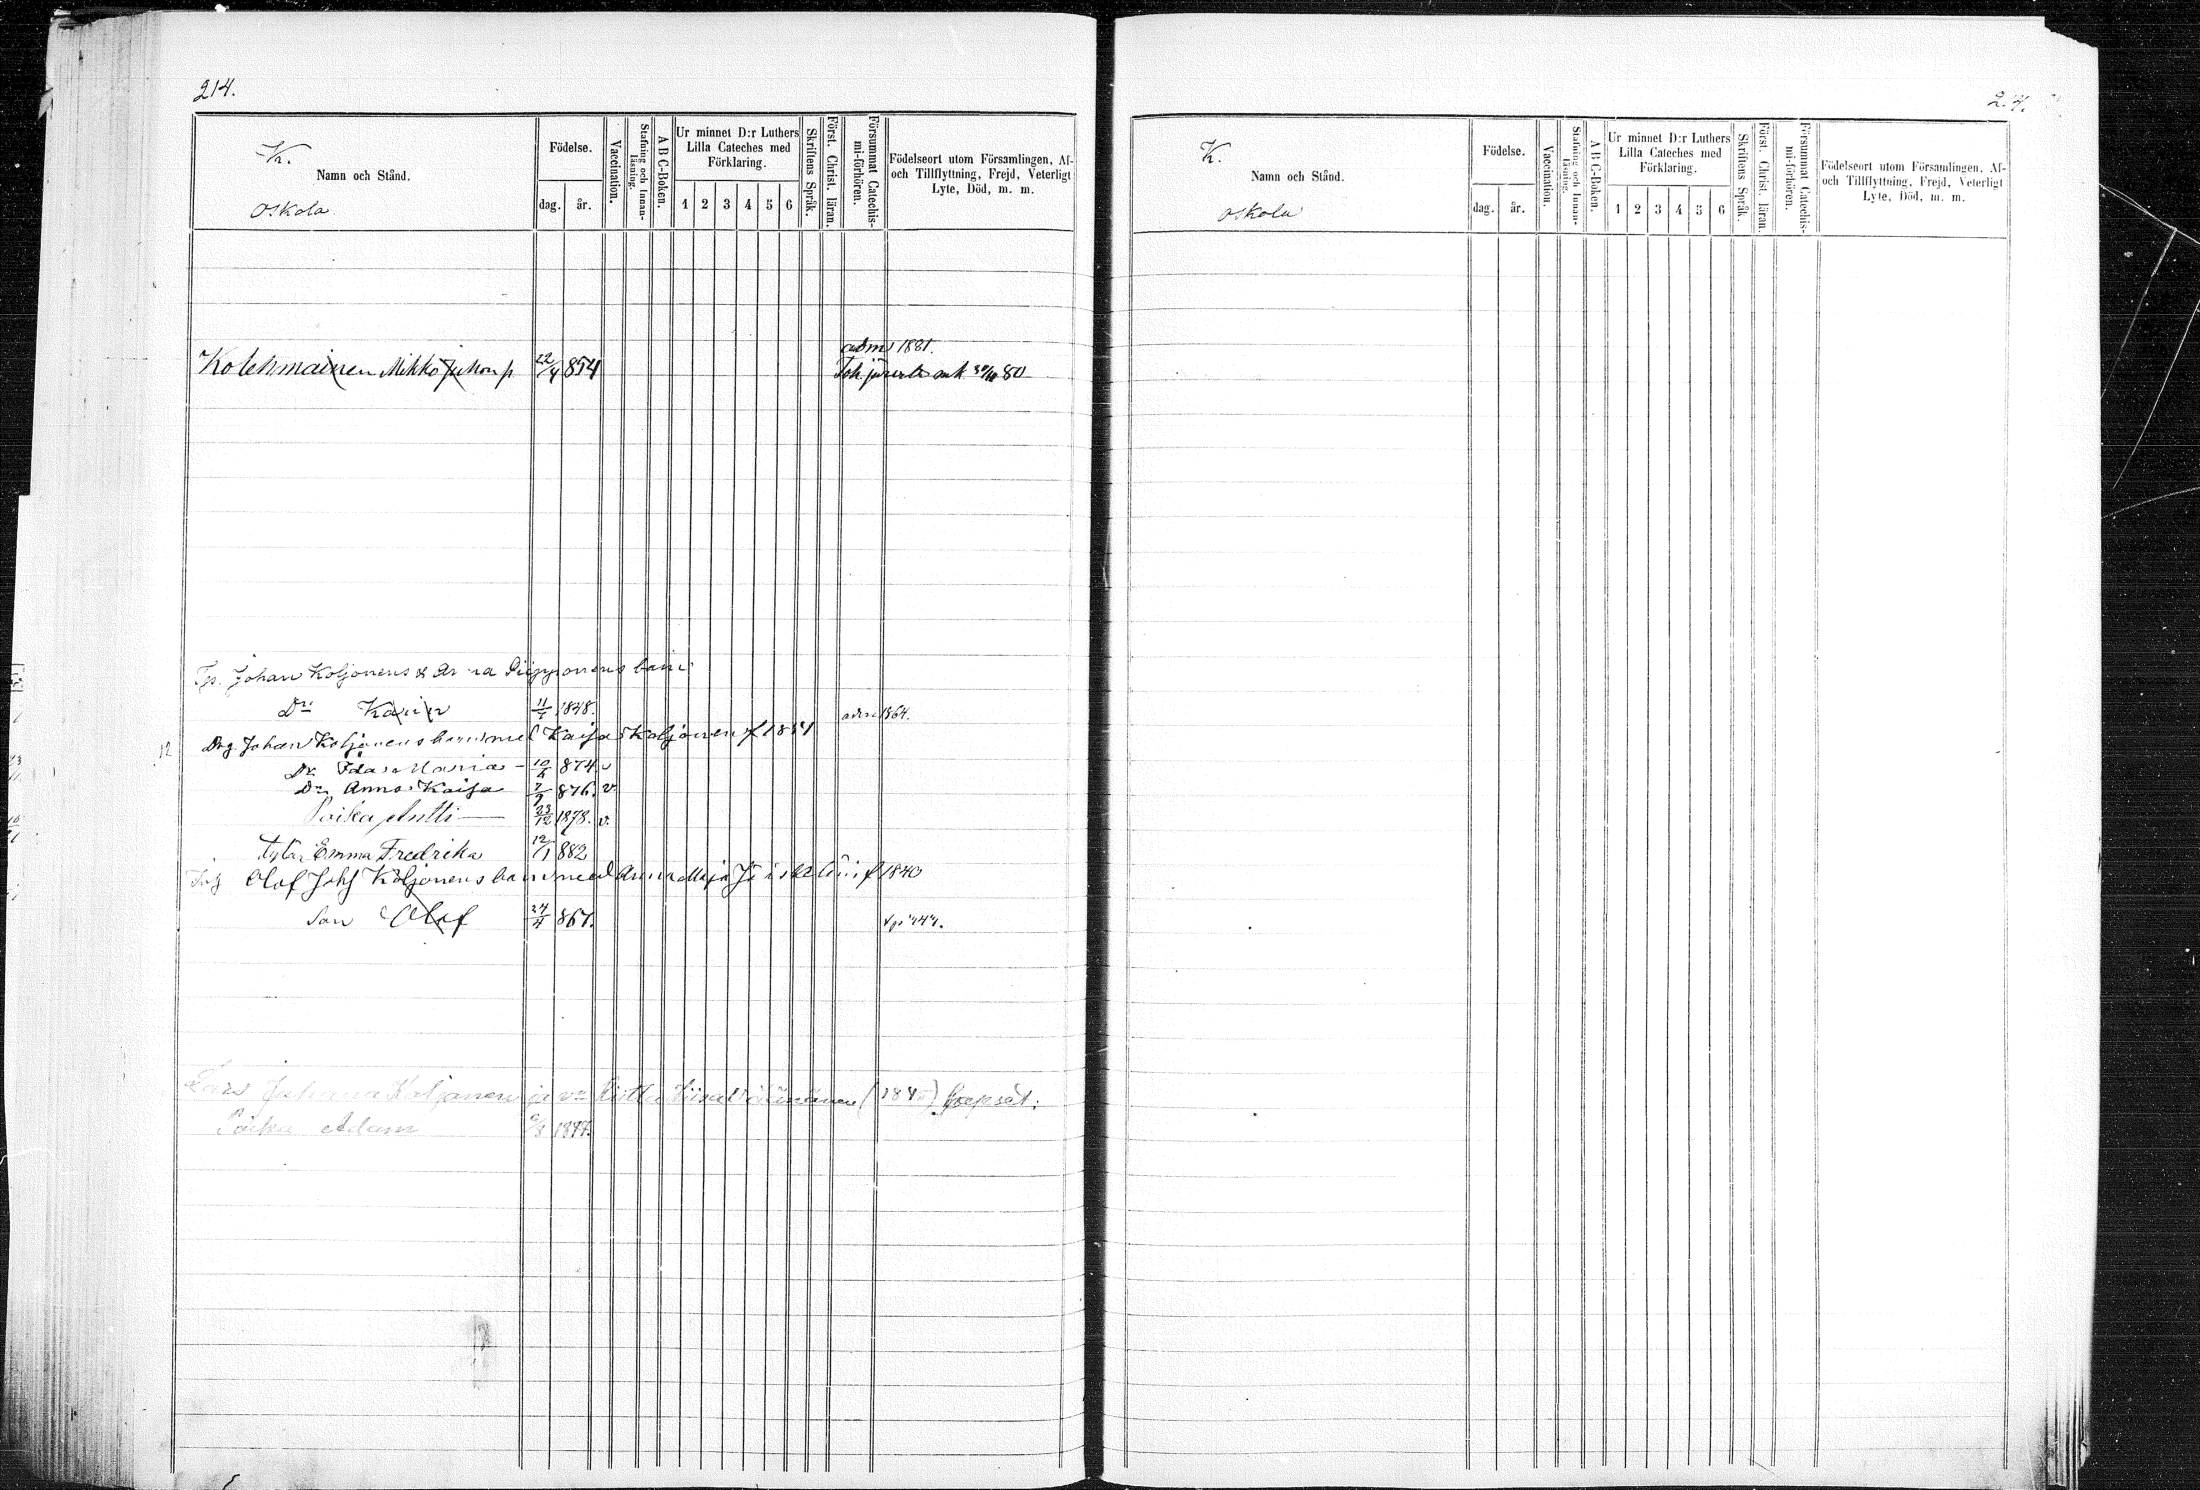 214.
K.
Namn och Stånd.
Oskola
Födelse.
dag. år.
Vaccination.
Stafning och Innan-läsning.
A B C-Boken.
Ur minnet D:r Luthers
Lilla Cateches med
Förklaring.
1 2 3 4 5 6
Skriftens Språk.
Först. Christ. läran.
Försummat Catechis-mi-förhören.
Födelseort utom Församlingen, Af-
och Tillflyttning, Frejd, Veterligt
Lyte, Död, m. m.
adm 1881.
Kolehmainen Mikko Juhon p 22/4 854 80
Johan Koljonens & Piipponens barn
Dr Karin 11/ 1848. adm 1864.
Drg. Johan Koljonens barn med Kaisa Koljonen f 1854
Dr Ida Maria – 10/ 874. v
Dr Anna Kaisa 7/9 876. v
Poika Antti — 23/12 1878. v.
tytär Emma Fredrika 12/1 882
Olof Johf Koljonens barn med Anna Maja f 1840
Son Olof 24/4 867.
Lars Juhana Koljonen ja vm lapset:
Poika Adam /8
K.
Namn och Stånd.
Oskola
Födelse.
dag. år.
Vaccination.
Stafning och Innan-läsning.
A B C-Boken.
Ur minnet D:r Luthers
Lilla Cateches med
Förklaring.
1 2 3 4 5 6
Skriftens Språk.
Först. Christ. läran.
Försummat Catechis-mi-förhören.
Födelseort utom Församlingen, Af-
och Tillflyttning, Frejd, Veterligt
Lyte, Död, m. m.